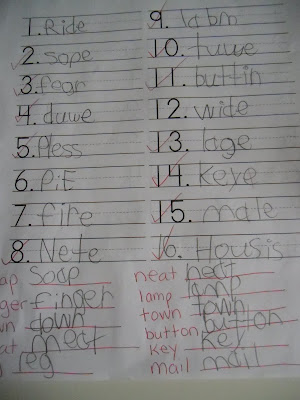 1. Ride
2. sope
3.
4. duwe
5. Pless
6. PiE
7. fire
8. Nete
9. labm
10. tuwe
11. buttin
12. wide
13. lage
14. keye
15. male
16. Housis
ap soap
ger finger
wn down
at meat
leg
neat neat
lamp lamp
town town
button button
key key
mail mail